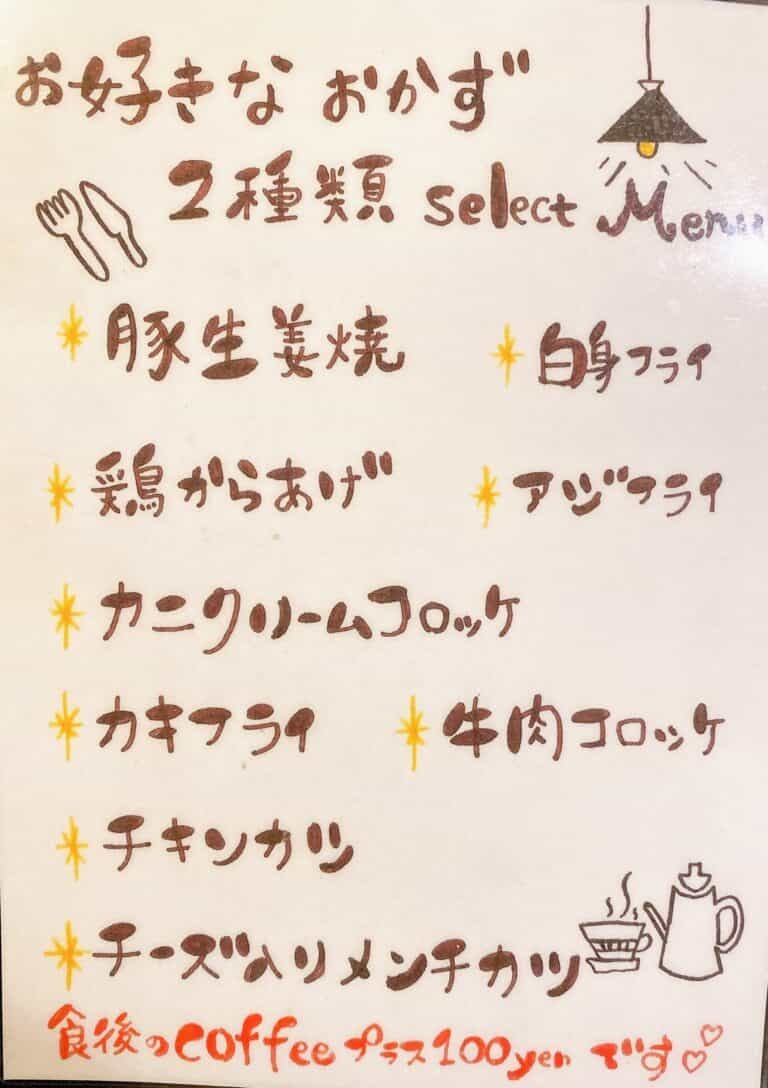 お好きな おかず
2種類 select Menu
豚生姜焼 白身フライ
鶏からあげ アジフライ
カニクリームコロッケ
カキフライ 牛肉コロッケ
チキンカツ
チーズ入りメンチカツ
食後のcoffeeプラス100yenです